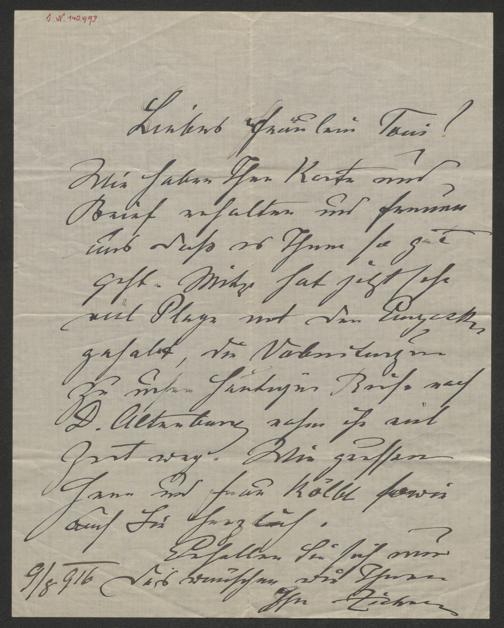 I. N. 140.993
Liebes Fräulein Toni!
Wir haben Ihre Karte und
Brief erhalten und freuen
uns daß es Ihnen so gut
geht. Mitzi hat jetzt sehr
viel Plage mit den
gehabt, die Vorbereitungen
zu unserer heutigen Reise nach
D. Altenburg nahm ihr viel
Zeit weg. Wir grüssen
Herrn und Frau Kölbl sowie
auch Sie herzlich.
Erhalten Sie sich nur
das wünschen wir Ihnen
9/8 916
Ihre